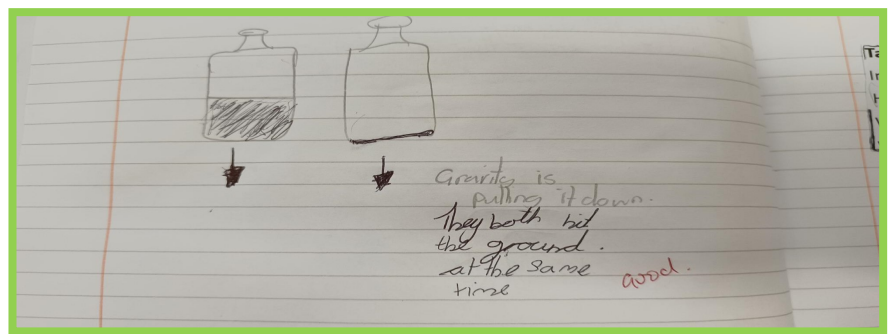 Gravity is
pulling it down.
They both hit
the ground.
at the same
time
good.
Ta